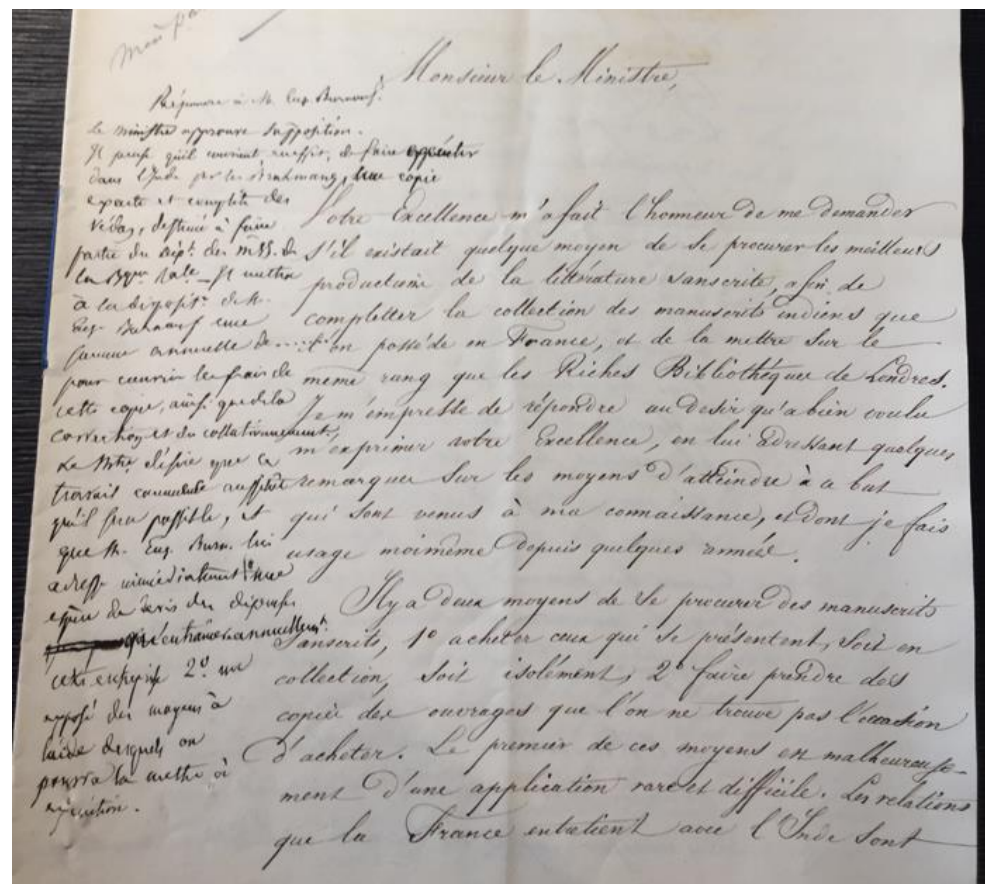 Monsieur le Ministre,
Répondre à M. Eug. Burnouf.
Le Ministre approuve sa pposition.
Il pense qu'il convient, en effet, de faire exécuter
dans l'Inde par les Brahmang, une copie
exacte et complète des
Védas, destinée à faire
partie du dépt. des MSS. de
la Bque. Rale. Il mettra
à la disposit. de M.
Eug. Burnouf une
somme annuelle de.....
pour couvrir les frais de
cette copie, ainsi que de la
correction et du collationnement,
Le Mtre désire que ce
travail commence aussitôt
qu'il sera possible, et
que M. Eug. Burn. lui
adresse immédiatement 1° une
espèce de devis des dépenses
qu'entraînera annuellemt.
cette entreprise 2° un
exposé des moyens à
l'aide desquels on
pourra la mettre à
exécution.
Votre Excellence m'a fait l'honneur de me demander
s'il existait quelque moyen de se procurer les meilleurs
productions de la littérature sanscrite, afin de
completter la collection des manuscrits indiens que
l'on possède en France, et de la mettre sur le
même rang que les Riches Bibliothéques de Londres.
Je m'empresse de répondre au desir qu'a bien voulu
m'exprimer votre Excellence, en lui adressant quelques
remarques sur les moyens d'atteindre à ce but
qui sont venus à ma connaissance, et dont je fais
usage moimême depuis quelques année.
Il y a deux moyens de se procurer des manuscrits
Sanscrits, 1° acheter ceux qui se présentent, soit en
collection, soit isolément, 2° faire prendre des
copies des ouvrages que l'on ne trouve pas l'occasion
d'acheter. Le premier de ces moyens est malheureuse-
ment d'une application rare et difficile. Les relations
que la France entretient avec l'Inde sont